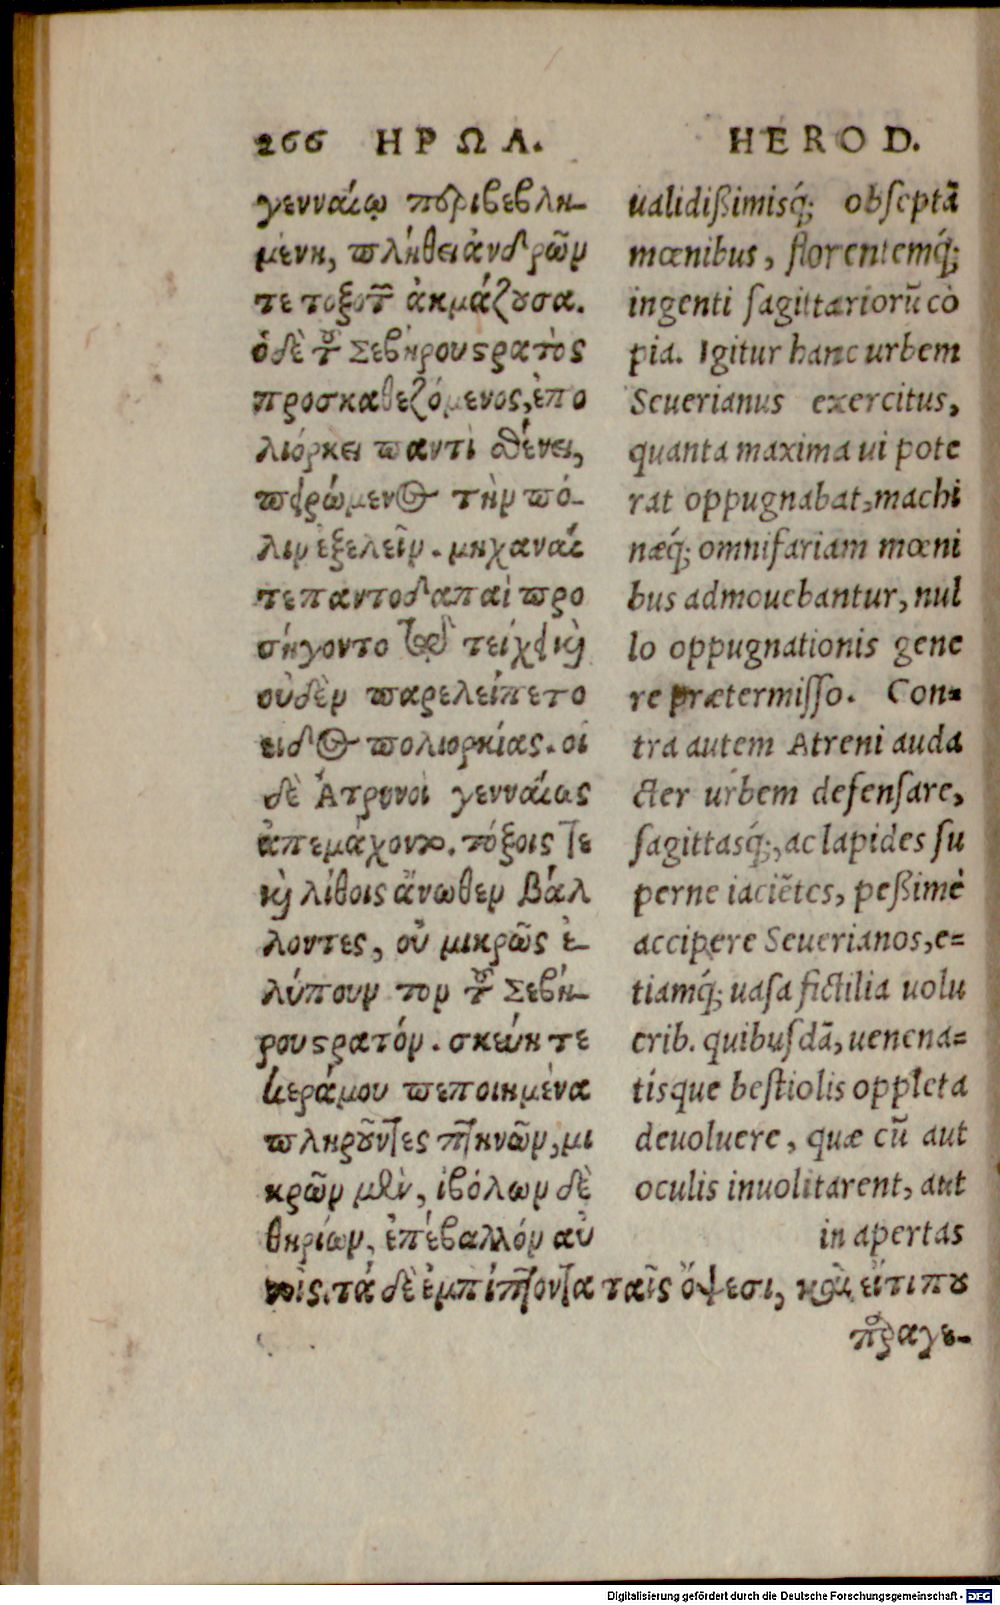 266 ΗΡΩΔ.
γενναίῳ περιβεβλη-
μένη, πλήθει ἀνδρῶν
τε τοξοτῶν ἀκμάζουσα.
ὁ δὲ τοῦ Σεβήρου στρατὸς
προσκαθεζόμενος, ἐπο
λιόρκει παντὶ σθένει,
πειρώμενος τὴν πό-
λιν ἐξελεῖν. μηχαναί
τε παντοδαπαὶ προ
σήγοντο τῷ τείχει καὶ
οὐδὲν παρελείπετο
εἶδος πολιορκίας. οἱ
δὲ Ἀτρηνοὶ γενναίως
ἀπεμάχοντο. τόξοις τε
καὶ λίθοις ἄνωθεν βάλ
λοντες, οὐ μικρῶς ἐ-
λύπουν τὸν τοῦ Σεβή-
ρου στρατόν. σκεύη τε
κεράμου πεποιημένα
πληροῦντες πτηνῶν, μι
κρῶν μὲν, ἰοβόλων δὲ
θηρίων, ἐπέβαλλόν αὐ
τοῖς. τά δὲ ἐμπίπτοντα ταῖς ὄψεσι, καὶ εἴ τι που
παραγε-
HEROD.
ualidißimisq́; obseptā
mœnibus, florentemq́;
ingenti sagittariorū co
pia. Igitur hanc urbem
Seuerianus exercitus,
quanta maxima ui pote
rat oppugnabat, machi
næq́; omnifariam mœni
bus admouebantur, nul
lo oppugnationis gene
re prætermisso. Con=
tra autem Atreni auda
cter urbem defensare,
sagittasq́;, ac lapides su
perne iaciētes, peßimè
accipere Seuerianos, e=
tiamq́; uasa fictilia uolu
crib. quibusdā, uenena=
tisque bestiolis oppleta
deuoluere, quæ cū aut
oculis inuolitarent, aut
in apertas
Digitalisierung gefördert durch die Deutsche Forschungsgemeinschaft - DFG